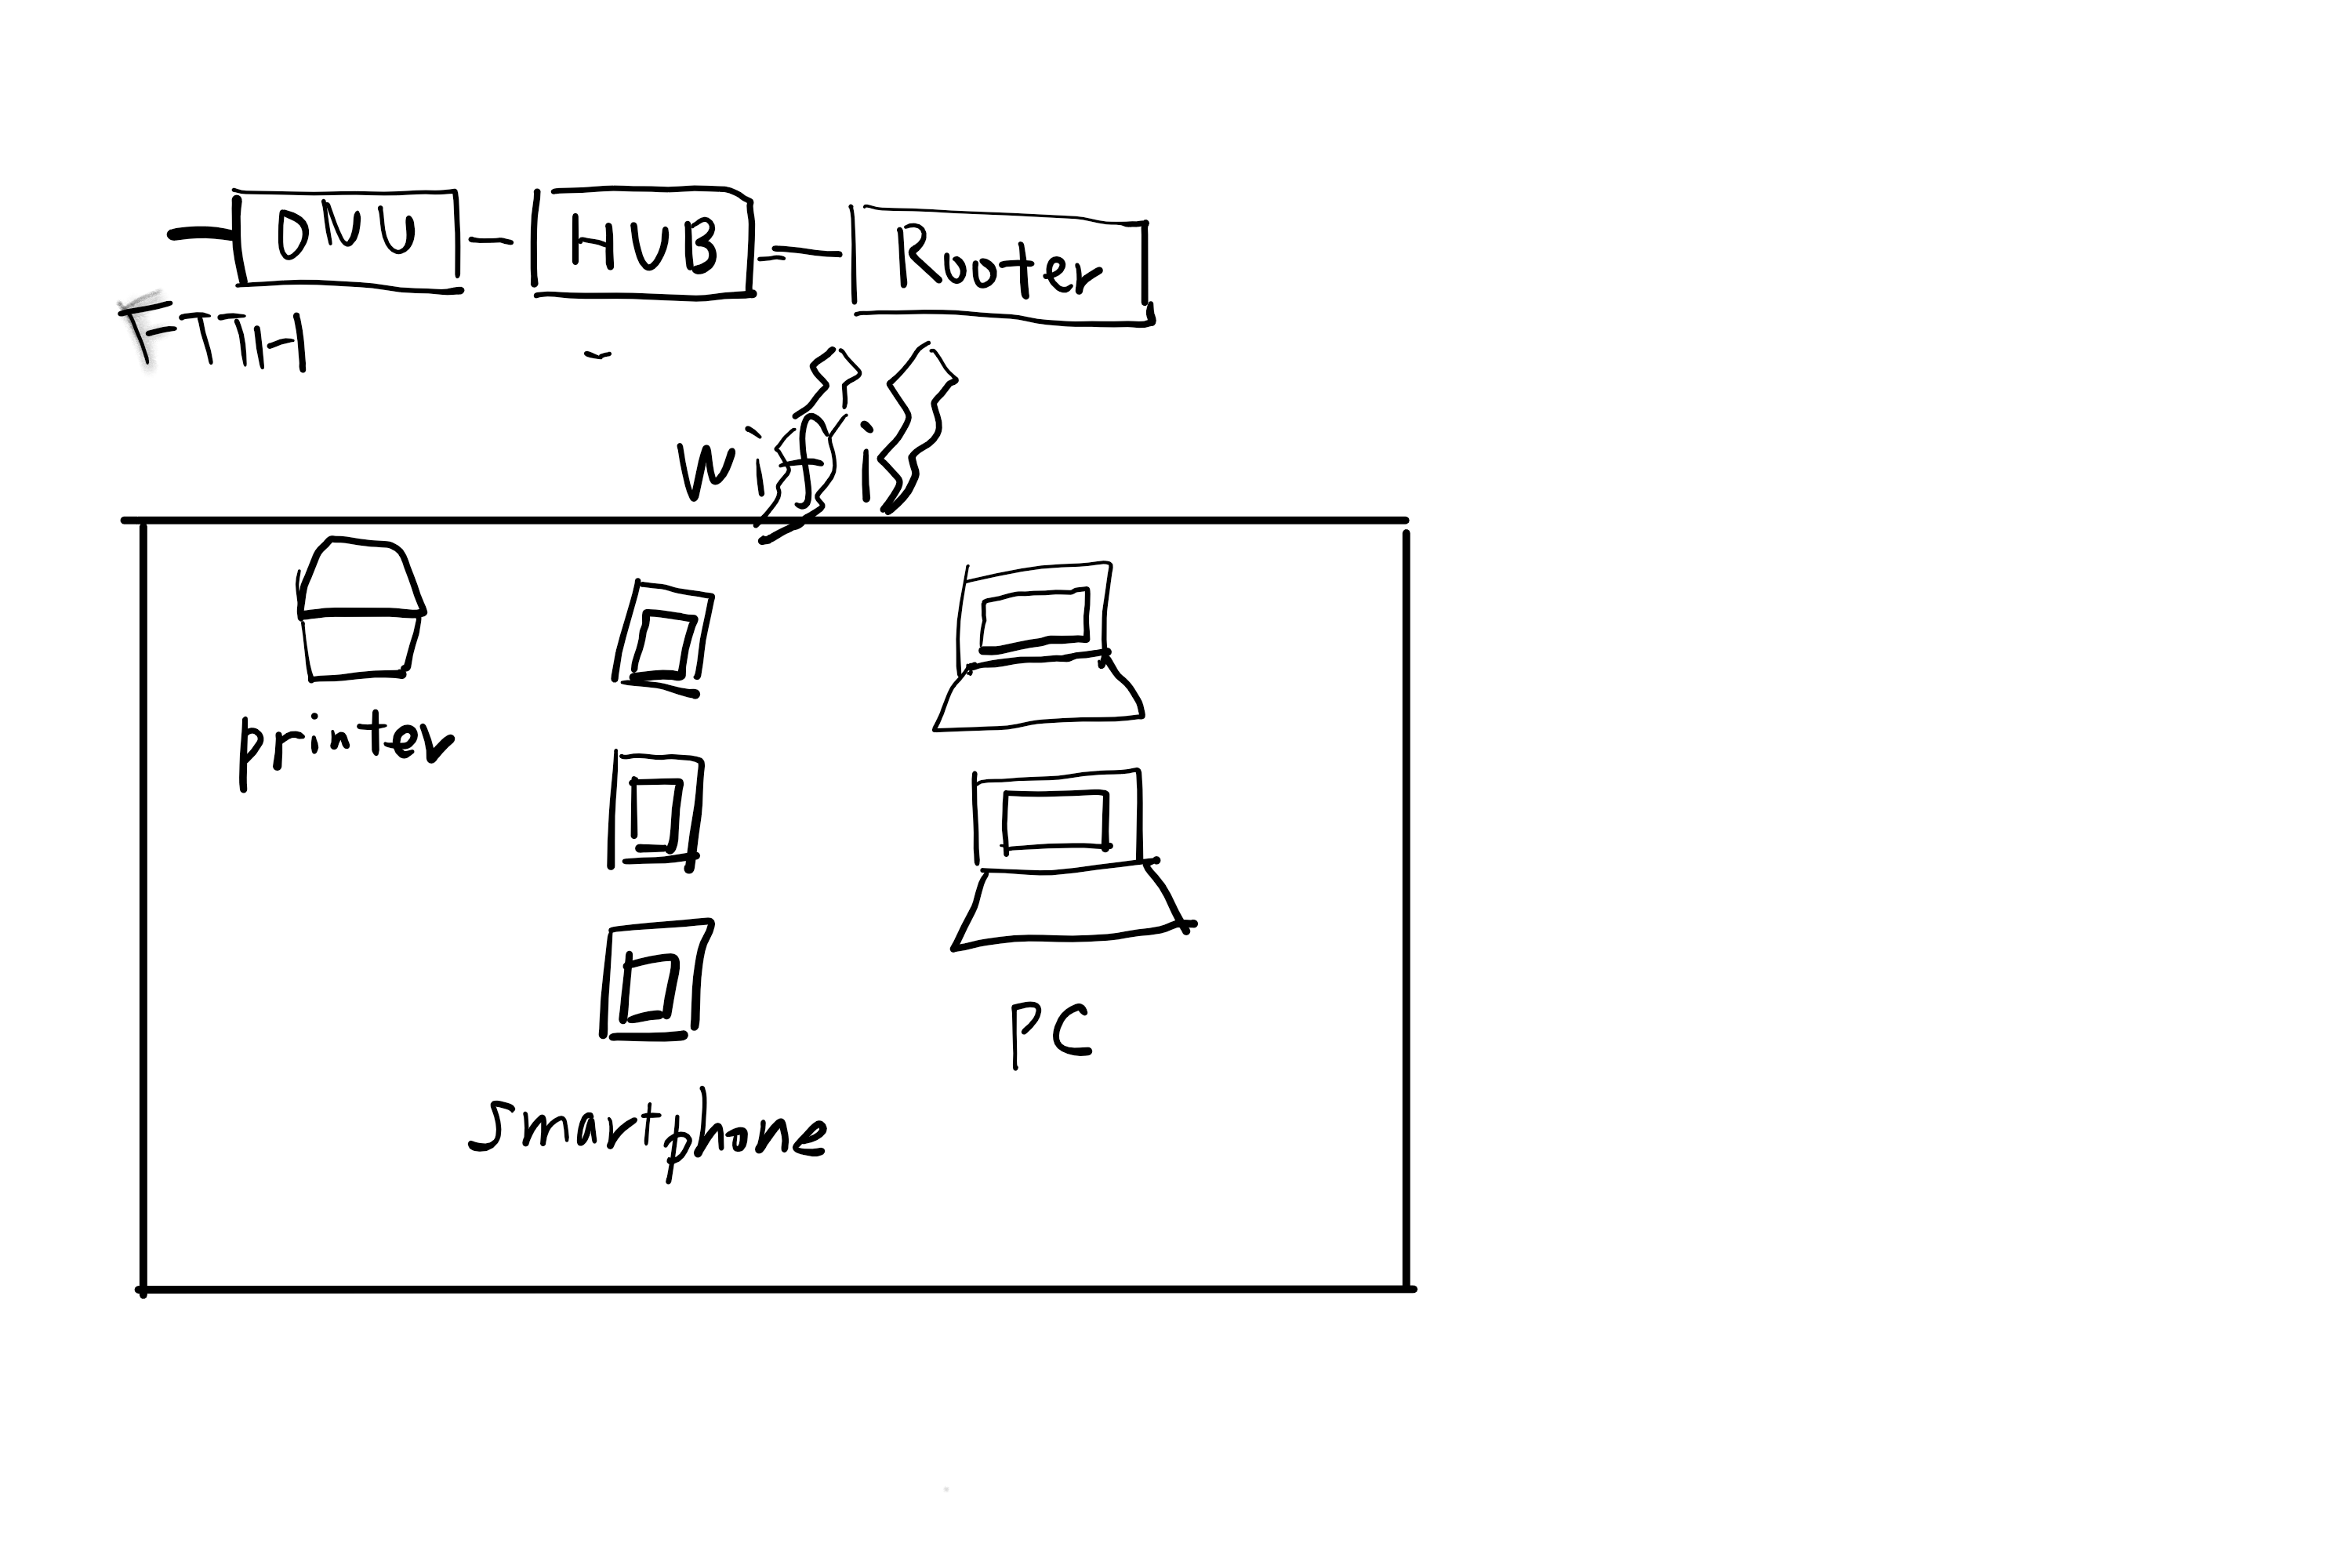 ONU
HUB
Rooter
FTTH
wifi
printer
PC
smartphone